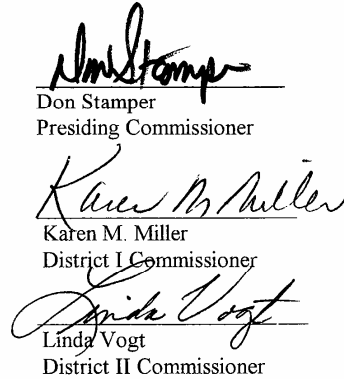 Don Stamper
Don Stamper
Presiding Commissioner
Karen M Miller
Karen M. Miller
District I Commissioner
Linda Vogt
Linda Vogt
District II Commissioner